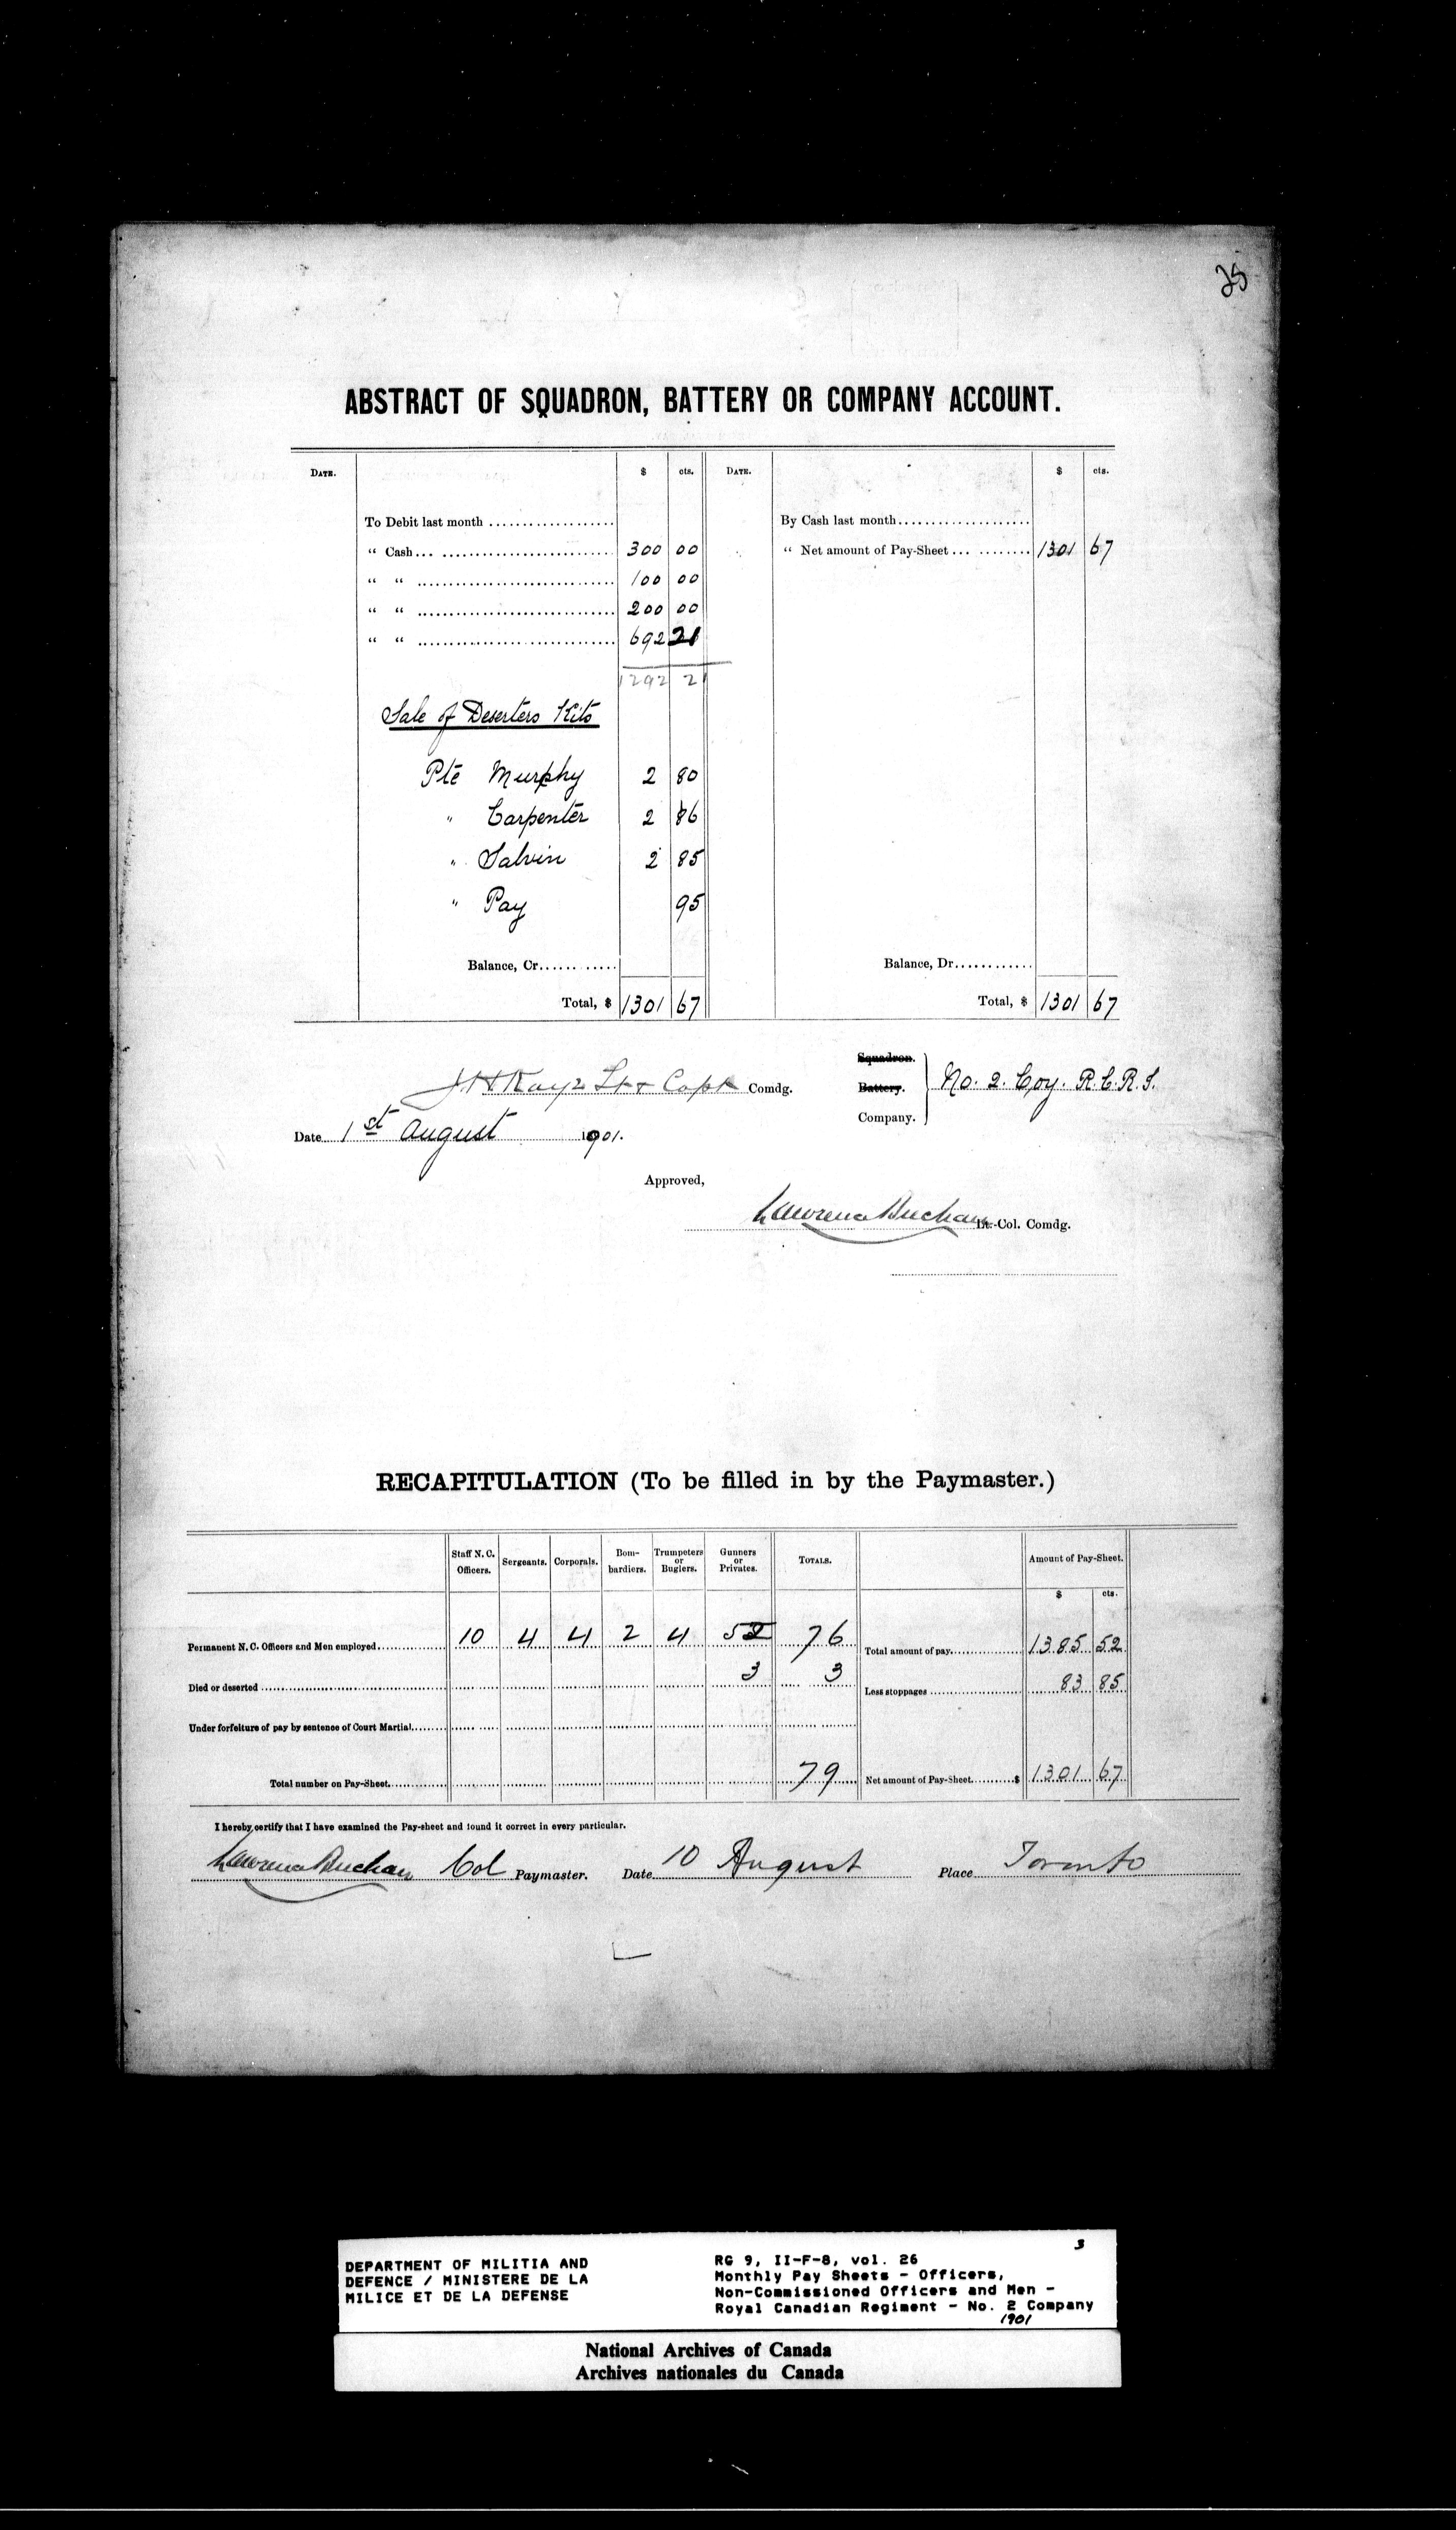 25
ABSTRACT OF SQUADRON, BATTERY OR COMPANY ACCOUNT.
DATE. $ cts. DATE. $ cts.
To Debit last month By Cash last month
" Cash 300 00 " Net amount of Pay-Sheet 1301 67
" " 100 00
" " 200 00
" " 692 21
1292 21
Sale of Deserters Kits
Pte Murphy 2 80
" Carpenter 2 86
" Salvin 2 85
" Pay 95
Balance, Cr. Balance, Dr.
Total, $ 1301 67 Total, $ 1301 67
Squadron.
Lt & Capt Comdg. Battery. No. 2. Coy. R.C.R.I.
Company.
Date 1st August 1901.
Approved,
Lawrence Buchan Lt.-Col. Comdg.
RECAPITULATION (To be filled in by the Paymaster.)
Staff N. C. Officers. Sergeants. Corporals. Bombardiers. Trumpeters or Buglers. Gunners or Privates. TOTALS. Amount of Pay-Sheet.
$ cts.
Permanent N. C. Officers and Men employed 10 4 4 2 4 52 76 Total amount of pay 1385 52
Died or deserted 3 3 Less stoppages 83 85
Under forfeiture of pay by sentence of Court Martial
Total number on Pay-Sheet 79 Net amount of Pay-Sheet $ 1301 67
I hereby certify that I have examined the Pay-sheet and found it correct in every particular.
Lawrence Buchan Col Paymaster. Date 10 August Place Toronto
3
DEPARTMENT OF MILITIA AND
DEFENCE / MINISTERE DE LA
MILICE ET DE LA DEFENSE
RG 9, II-F-8, vol. 26
Monthly Pay Sheets - Officers,
Non-Commissioned Officers and Men -
Royal Canadian Regiment - No. 2 Company
1901
National Archives of Canada
Archives nationales du Canada